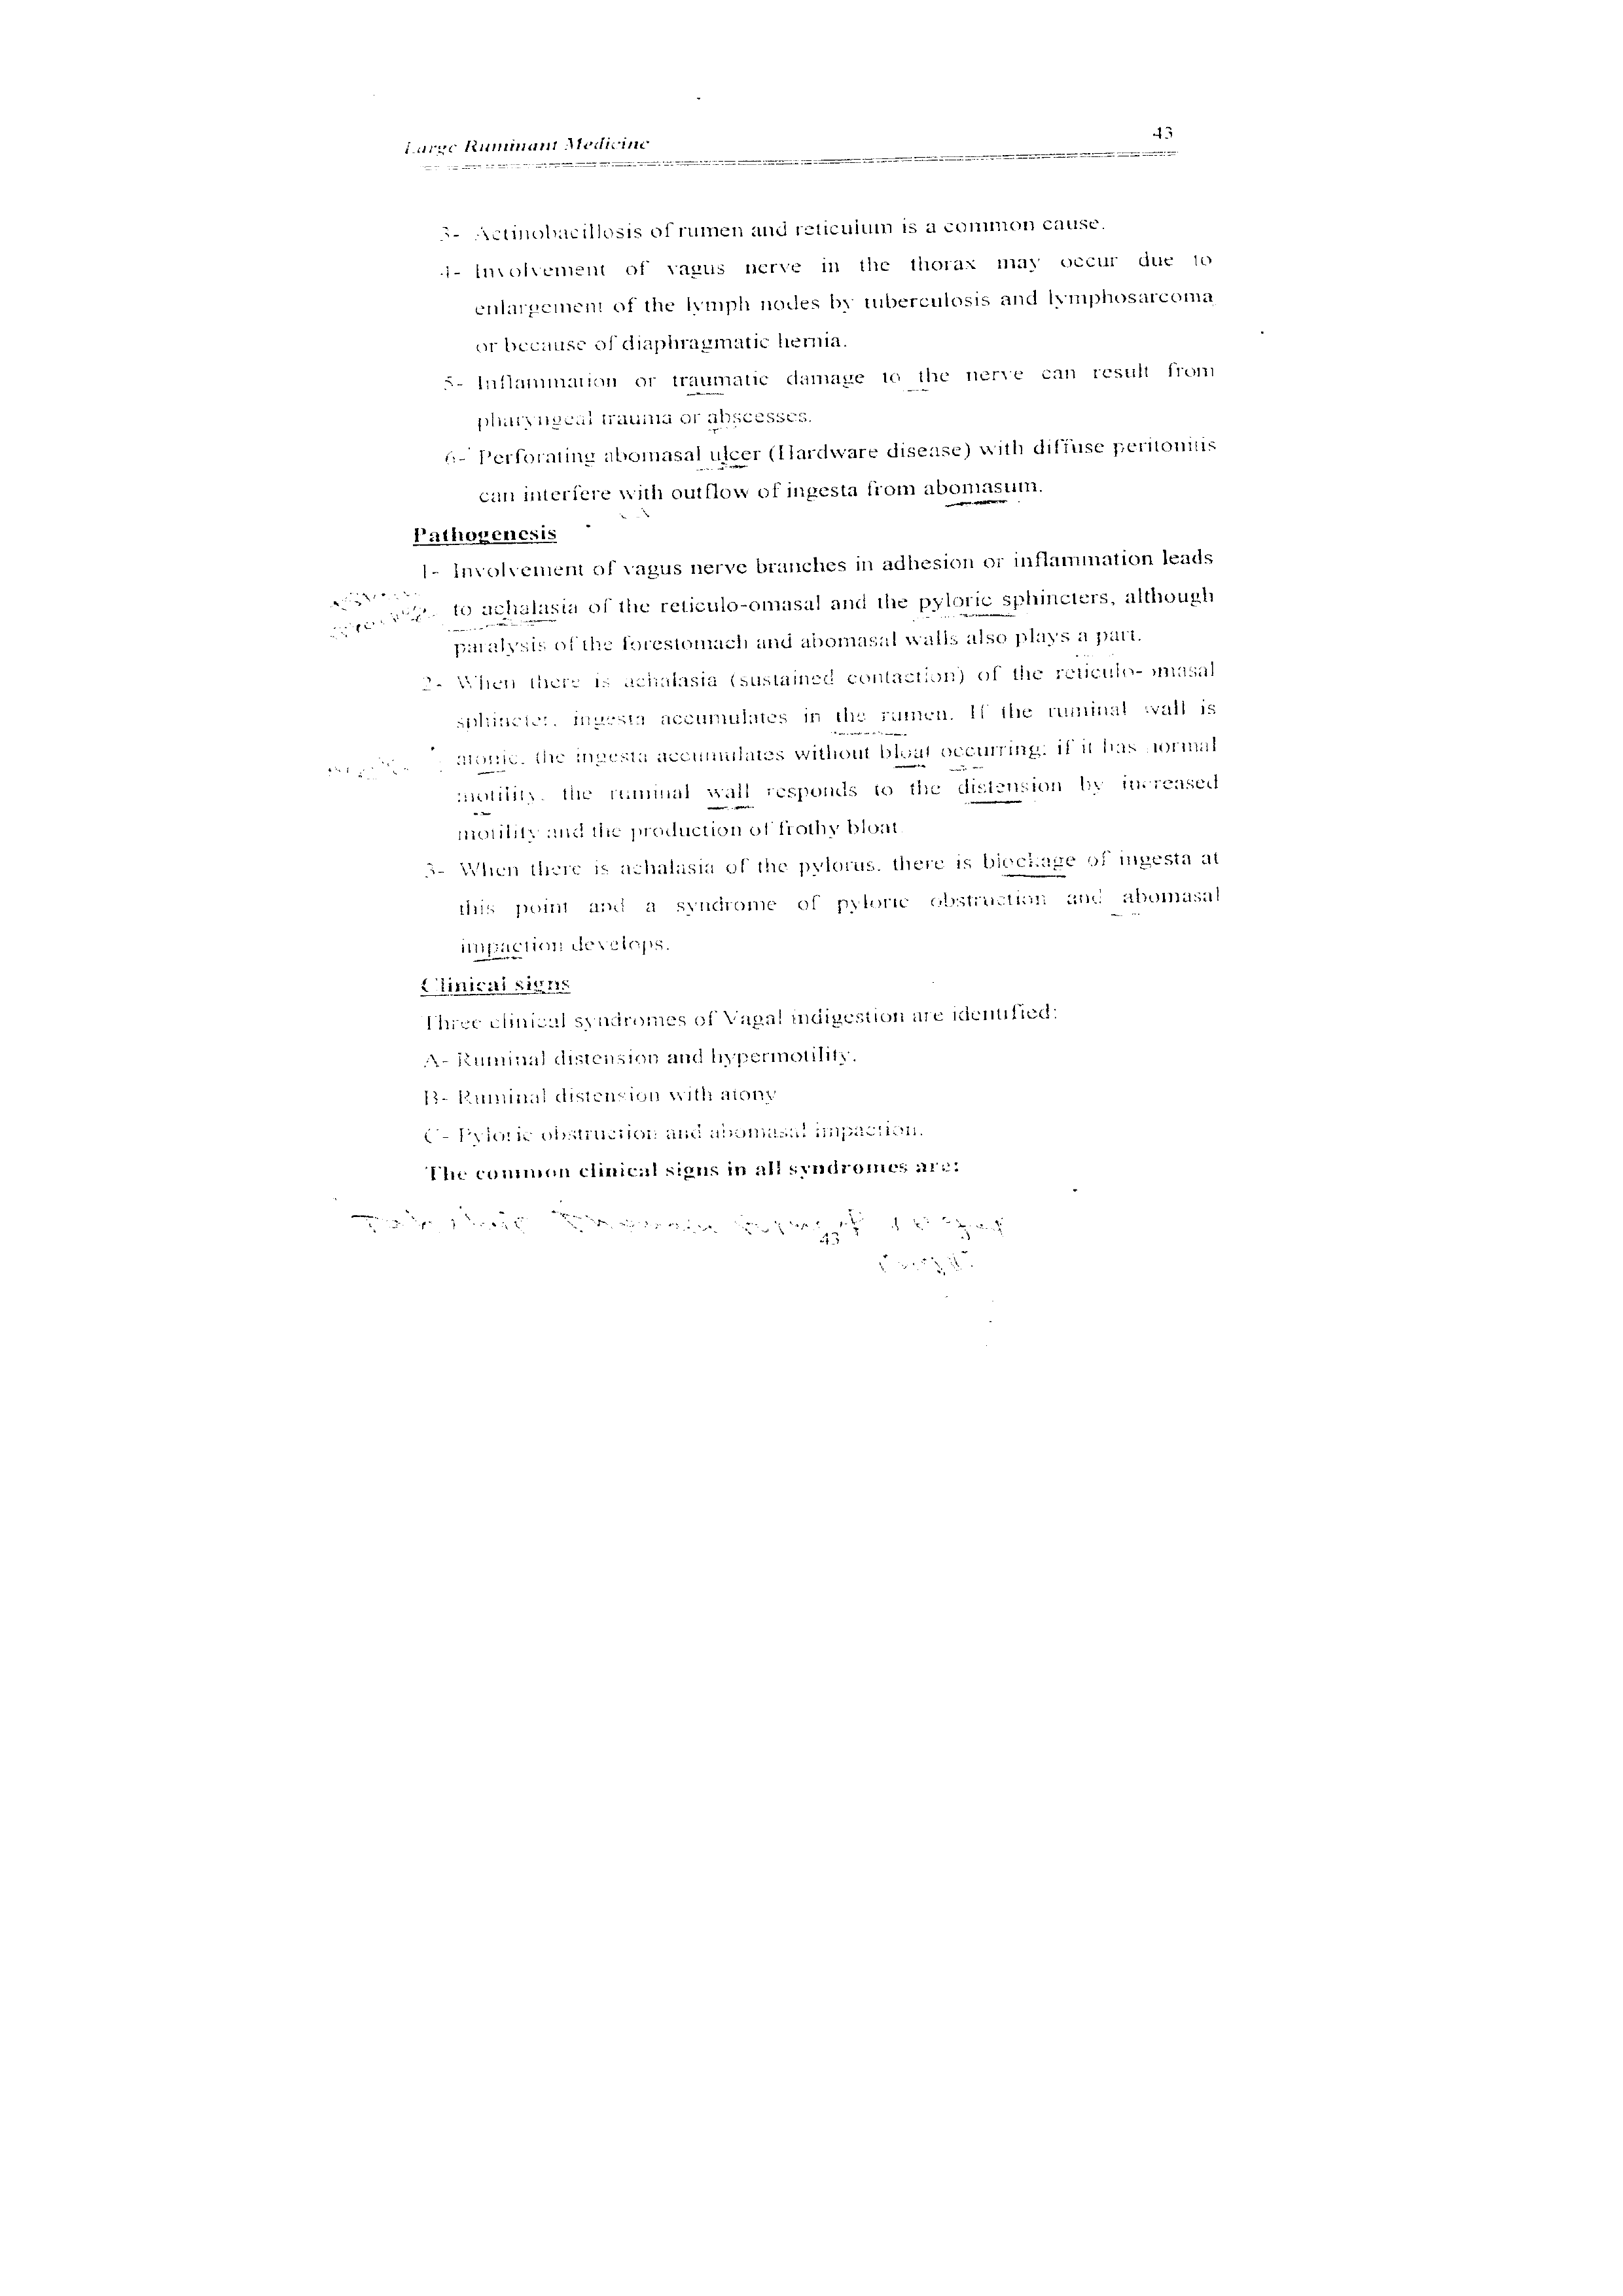 Large Ruminant Medicine 43
3- Actinobacillosis of rumen and reticulum is a common cause.
4- Involvement of vagus nerve in the thorax may occur due to
enlargement of the lymph nodes by tuberculosis and lymphosarcoma
or because of diaphragmatic hernia.
5- Inflammation or traumatic damage to the nerve can result from
pharyngeal trauma or abscesses.
6- Perforating abomasal ulcer (Hardware disease) with diffuse peritonitis
can interfere with outflow of ingesta from abomasum.
Pathogenesis
1- Involvement of vagus nerve branches in adhesion or inflammation leads
to achalasia of the reticulo-omasal and the pyloric sphincters, although
paralysis of the forestomach and abomasal walls also plays a part.
2- When there is achalasia (sustained contaction) of the reticulo-omasal
sphincter, ingesta accumulates in the rumen. If the ruminal wall is
atonic, the ingesta accumulates without bloat occurring; if it has normal
motility, the ruminal wall responds to the distension by increased
motility and the production of frothy bloat.
3- When there is achalasia of the pylorus, there is blockage of ingesta at
this point and a syndrome of pyloric obstruction and abomasal
impaction develops.
Clinical signs
Three clinical syndromes of Vagal indigestion are identified:
A- Ruminal distension and hypermotility.
B- Ruminal distension with atony
C- Pyloric obstruction and abomasal impaction.
The common clinical signs in all syndromes are:
43